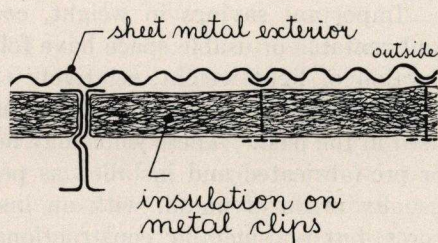 sheet metal exterior
outside
insulation on
metal clips